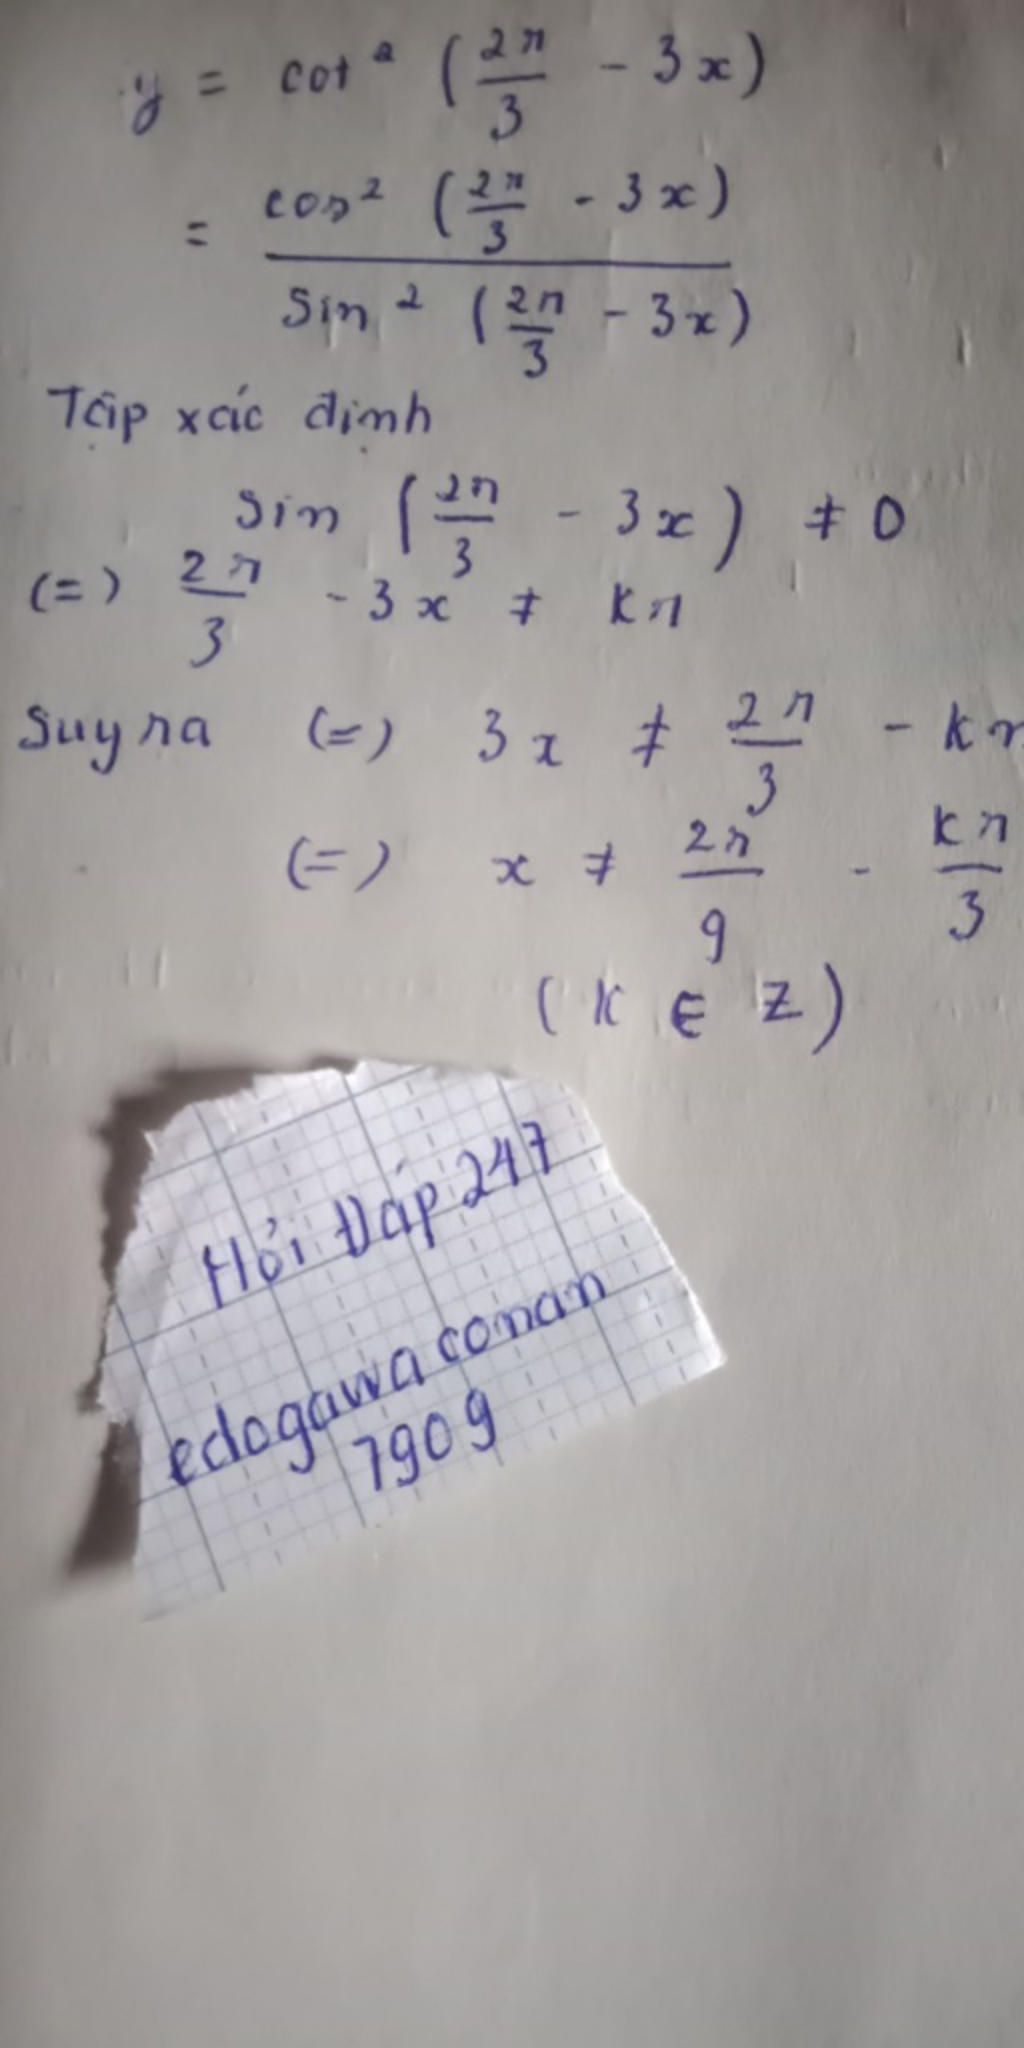 y = cot² (2π/3 - 3x)
= cos² (2π/3 - 3x) / sin² (2π/3 - 3x)
Tập xác định
sin (2π/3 - 3x) ≠ 0
(=) 2π/3 - 3x ≠ kπ
Suy ra (=) 3x ≠ 2π/3 - kπ
(=) x ≠ 2π/9 - kπ/3
(k ∈ Z)
Hỏi Đáp 247
edogawa conan
7909